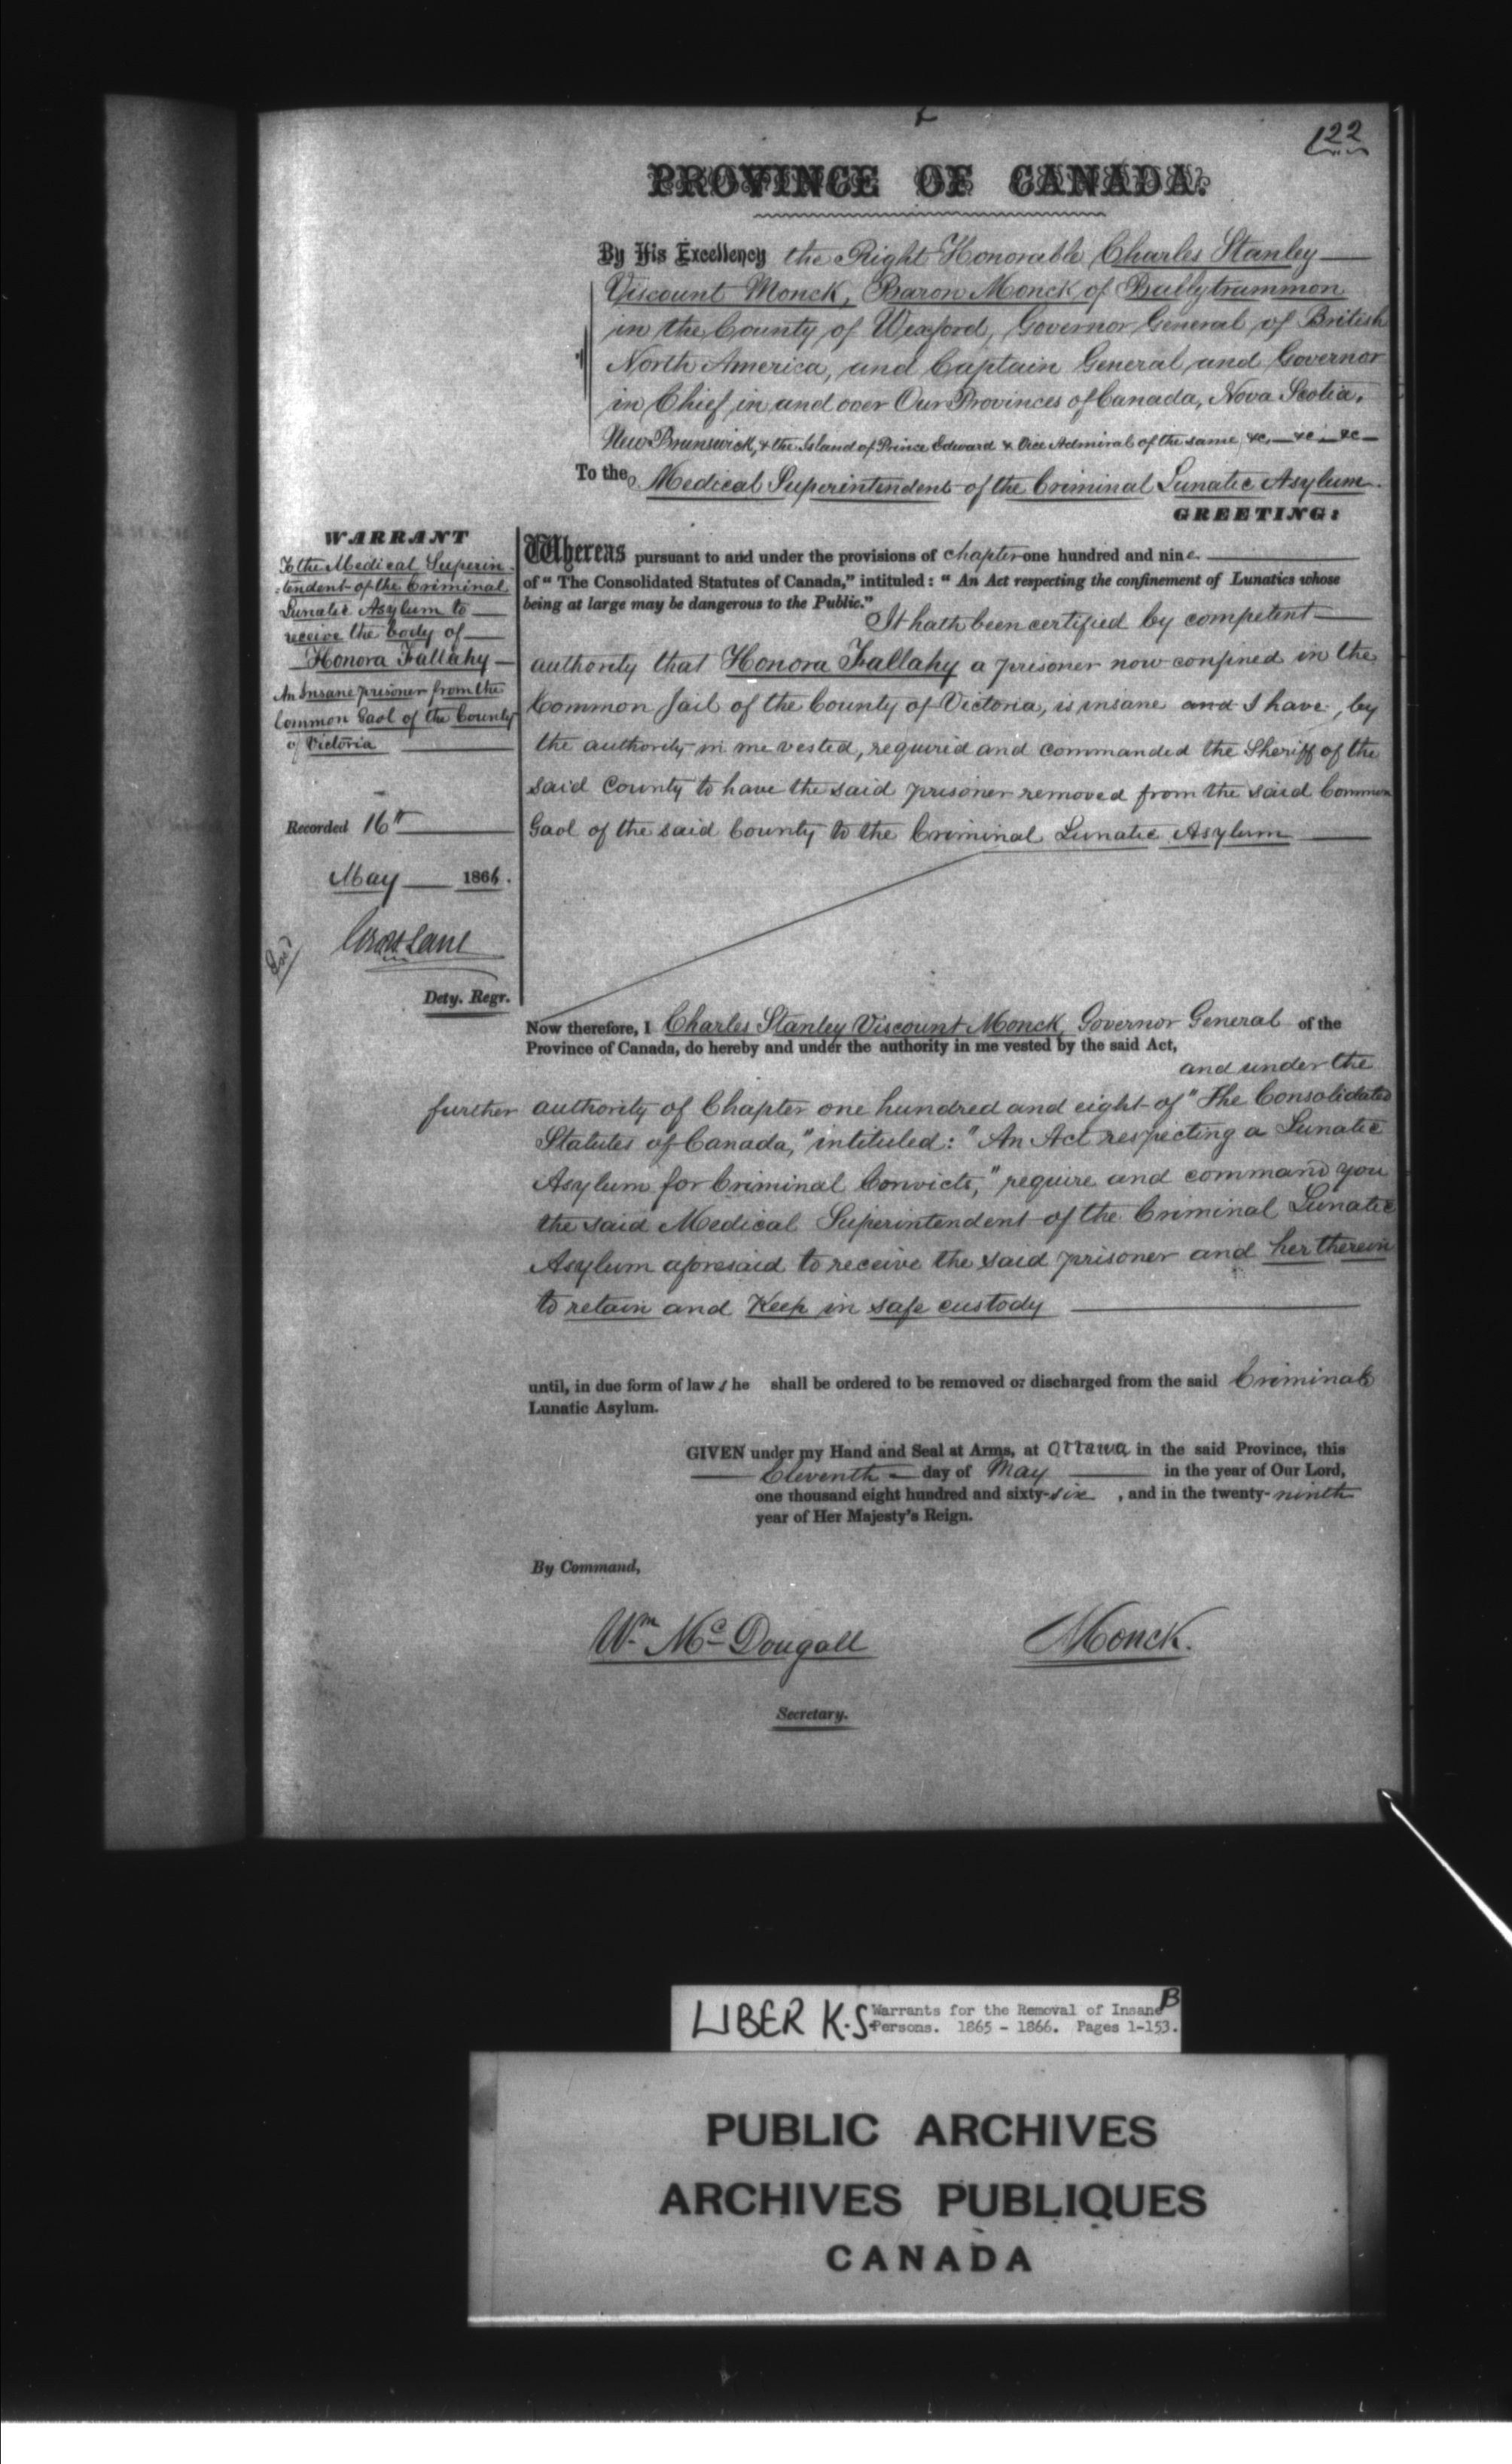 122
PROVINCE OF CANADA.
By His Excellency the Right Honorable Charles Stanley
Viscount Monck, Baron Monck of Ballytrammon
in the County of Wexford, Governor General of British
North America, and Captain General and Governor
in Chief in and over Our Provinces of Canada, Nova Scotia,
New Brunswick, & the Island of Prince Edward & Vice Admiral of the same &c. &c. &c
To the Medical Superintendent of the Criminal Lunatic Asylum.
GREETING:
WARRANT
To the Medical Superin
:tendent of the Criminal
Lunatic Asylum to
receive the body of
Honora Fallahy
An Insane prisoner from the
Common Gaol of the County
of Victoria
Recorded 16th
May 1866.
Dety. Regr.
Whereas pursuant to and under the provisions of chapter one hundred and nine
of "The Consolidated Statutes of Canada," intituled: "An Act respecting the confinement of Lunatics whose
being at large may be dangerous to the Public."
It hath been certified by competent
authority that Honora Fallahy a prisoner now confined in the
Common Jail of the County of Victoria, is insane and I have, by
the authority in me vested, required and commanded the Sheriff of the
said County to have the said prisoner removed from the said Common
Gaol of the said County to the Criminal Lunatic Asylum
Now therefore, I Charles Stanley Viscount Monck, Governor General of the
Province of Canada, do hereby and under the authority in me vested by the said Act,
and under the
further authority of Chapter one hundred and eight of "The Consolidated
Statutes of Canada," intituled: "An Act respecting a Lunatic
Asylum for Criminal Convicts," require and command you
the said Medical Superintendent of the Criminal Lunatic
Asylum aforesaid to receive the said prisoner and her therein
to retain and Keep in safe custody
until, in due form of law she shall be ordered to be removed or discharged from the said Criminal
Lunatic Asylum.
GIVEN under my Hand and Seal at Arms, at Ottawa in the said Province, this
Eleventh day of May in the year of Our Lord,
one thousand eight hundred and sixty-six, and in the twenty-ninth
year of Her Majesty's Reign.
By Command,
Wm McDougall
Monck.
Secretary.
LIBER K.S. Warrants for the Removal of Insane B
Persons. 1865 - 1866. Pages 1-153.
PUBLIC ARCHIVES
ARCHIVES PUBLIQUES
CANADA